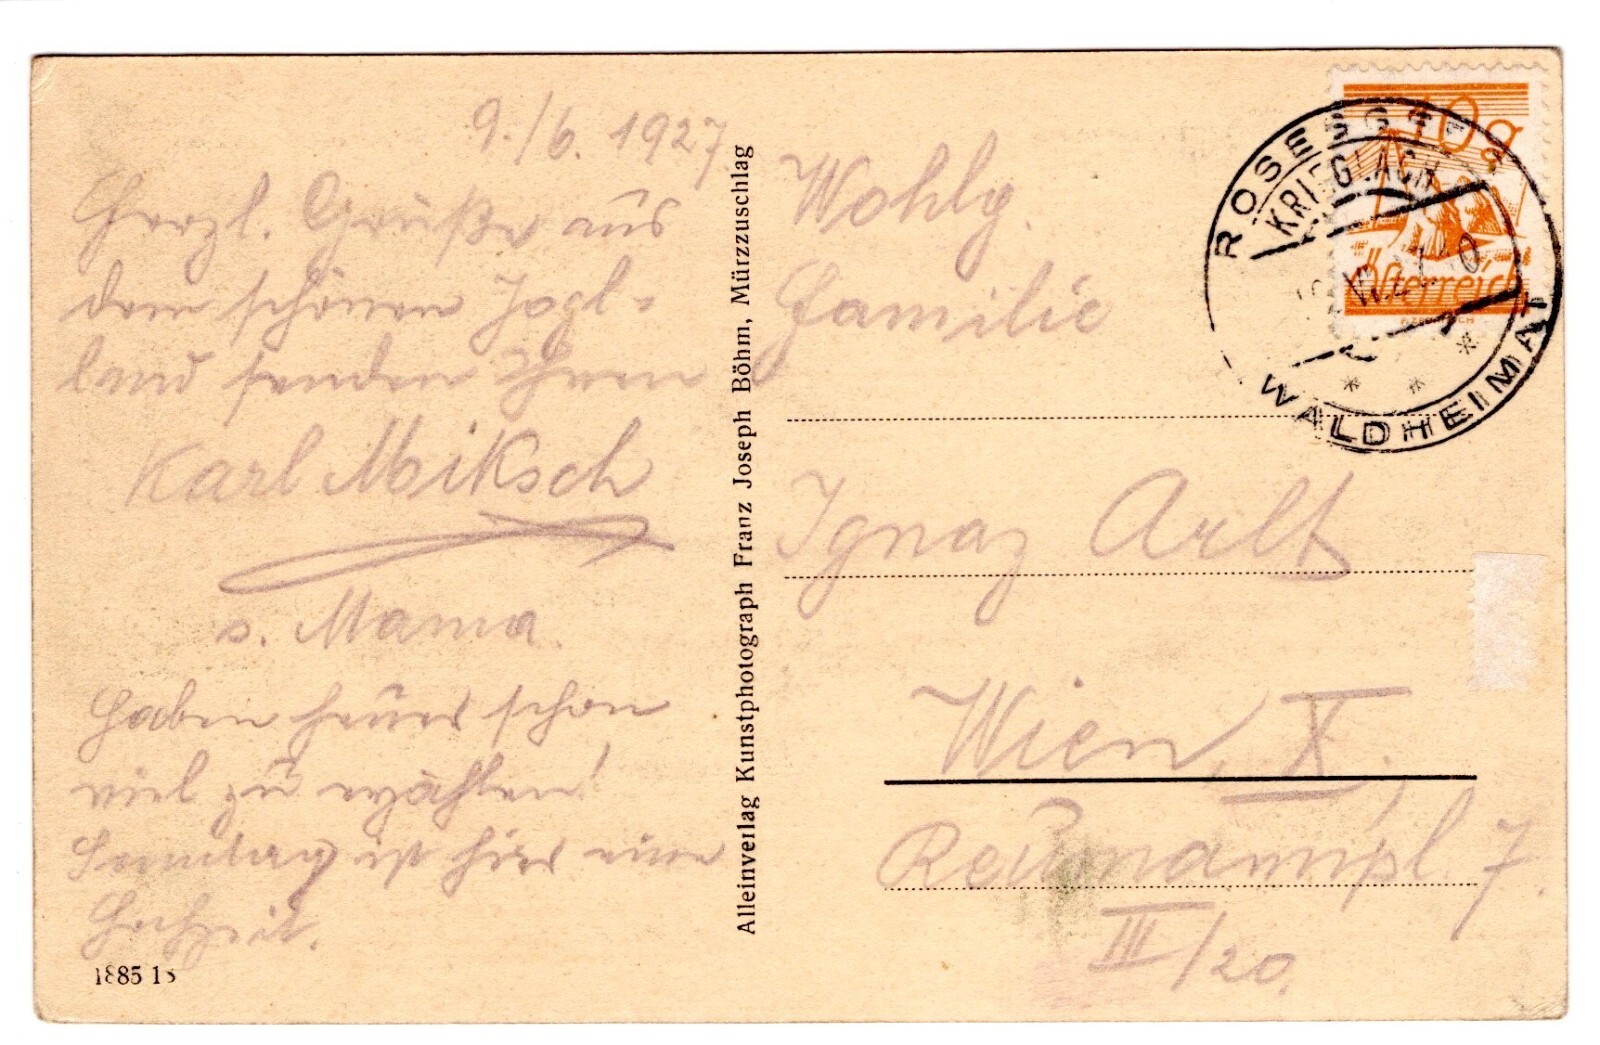 9./6. 1927
Herzl. Grüße aus
dem schönen Jogl-
land senden Ihnen
Karl Miksch
s. Mama.
Haben heuer schon
viel zu erzählen!
Sonntag ist hier eine
Hochzeit.
1885 18
Alleinverlag Kunstphotograph Franz Joseph Böhm, Mürzzuschlag
Wohlg.
Familie
Ignaz Arlt
Wien, X.
Reumannpl. 7.
III/20.
10 g
Österreich
KRIEGLACH
WALDHEIMAT